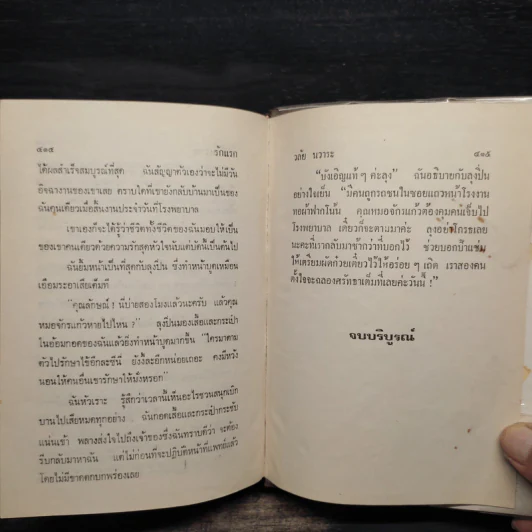 ๔๑๔ รักแรก
ได้ผลสำเร็จสมบูรณ์ที่สุด ฉันสัญญาตัวเองว่าจะไม่มีวัน
อิจฉางานของเขาเลย ตราบใดที่เขายังกลับบ้านมาเป็นของ
ฉันคนเดียวเมื่อสิ้นงานประจำวันที่โรงพยาบาล
เขาเองก็จะได้รู้ว่าชีวิตทั้งชีวิตของฉันมอบให้เป็น
ของเขาคนเดียวด้วยความรักสุดหัวใจนับแต่บัดนั้นเป็นต้นไป
ฉันยิ้มหน้าเป็นที่สุดกับลุงปั่น ซึ่งทำหน้าบูดเหมือน
เอือมระอาเสียเต็มที
"คุณลักษณ์ ! นี่บ่ายสองโมงแล้วนะครับ แล้วคุณ
หมอจักรแก้วหายไปไหน ?" ลุงปั่นมองเสื้อและกระเป๋า
ในอ้อมกอดของฉันแล้วยิ่งทำหน้าบูดมากขึ้น "ใครมาตาม
ตัวไปรักษาไข้อีกละซีนี่ ยังงี้ละอีกหน่อยเถอะ คงมีหวัง
นอนให้คนอื่นเขารักษาให้มั่งหรอก"
ฉันหัวเราะ รู้สึกว่าเวลานี้เห็นอะไรชวนสนุกเบิก
บานไปเสียหมดทุกอย่าง ฉันกอดเสื้อและกระเป๋ากระชับ
แน่นเข้า พลางส่งใจไปถึงเจ้าของซึ่งฉันทราบดีว่า จะต้อง
รีบกลับมาหาฉัน แต่ไม่ก่อนที่จะปฏิบัติหน้าที่แพทย์แล้ว
โดยไม่มีขาดตกบกพร่องเลย
วภัย นวาระ ๔๑๕
"บังเอิญแท้ ๆ ค่ะลุง" ฉันอธิบายกับลุงปั่น
อย่างใจเย็น "มีคนถูกรถชนในซอยแถวหน้าโรงงาน
ทอผ้าฟากโน้น คุณหมอจักรแก้วต้องคุมคนเจ็บไป
โรงพยาบาล เดี๋ยวก็จะตามมาค่ะ ลุงอย่าโกรธเลย
นะคะที่เรากลับมาช้ากว่าที่บอกไว้ ช่วยบอกป้าแช่ม
ให้เตรียมผัดก๋วยเตี๋ยวไว้ให้อร่อย ๆ เถิด เราสองคน
ตั้งใจจะฉลองศรัทธาเต็มที่เลยค่ะวันนี้ !"
จบบริบูรณ์